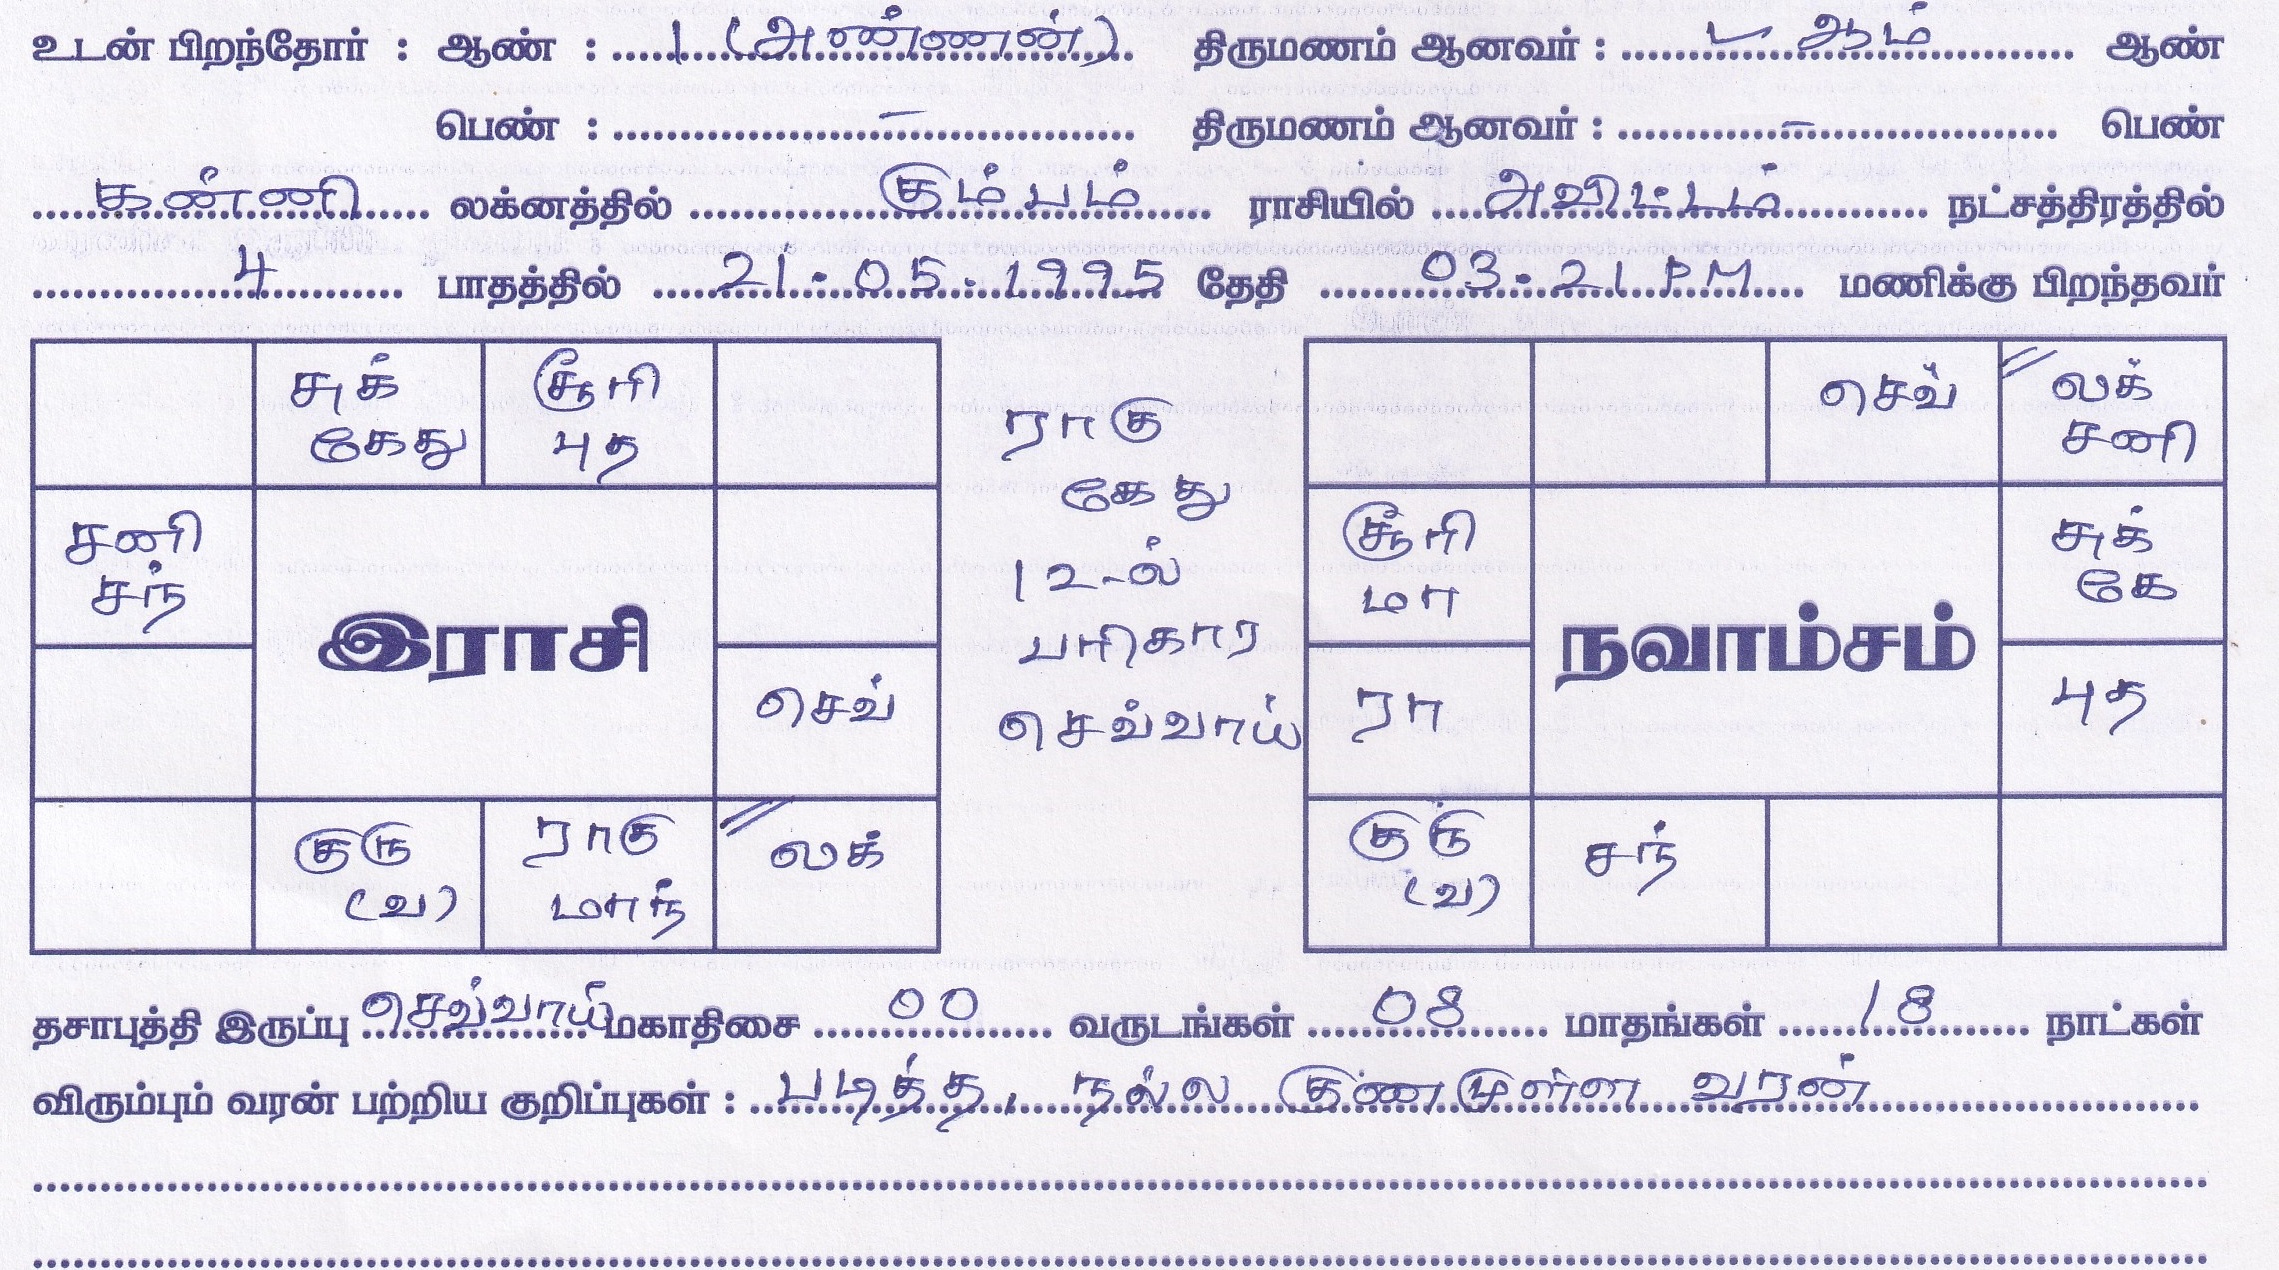 உடன் பிறந்தோர் : ஆண் : 1 (அண்ணன்) திருமணம் ஆனவர் : ஆம் ஆண்
பெண் : – திருமணம் ஆனவர் : – பெண்
கன்னி லக்னத்தில் கும்பம் ராசியில் அவிட்டம் நட்சத்திரத்தில்
4 பாதத்தில் 21.05.1995 தேதி 03.21 PM மணிக்கு பிறந்தவர்
சுக் சூரி
கேது புத
சனி
சந்
இராசி
செவ்
குரு ராகு லக்
(வ) மாந்
ராகு
கேது
12-ல்
பரிகார
செவ்வாய்
செவ் லக்
சனி
சூரி சுக்
மா கே
நவாம்சம்
ரா புத
குரு சந்
(வ)
தசாபுத்தி இருப்பு செவ்வாய் மகாதிசை 00 வருடங்கள் 08 மாதங்கள் 18 நாட்கள்
விரும்பும் வரன் பற்றிய குறிப்புகள் : படித்த, நல்ல குணமுள்ள வரன்